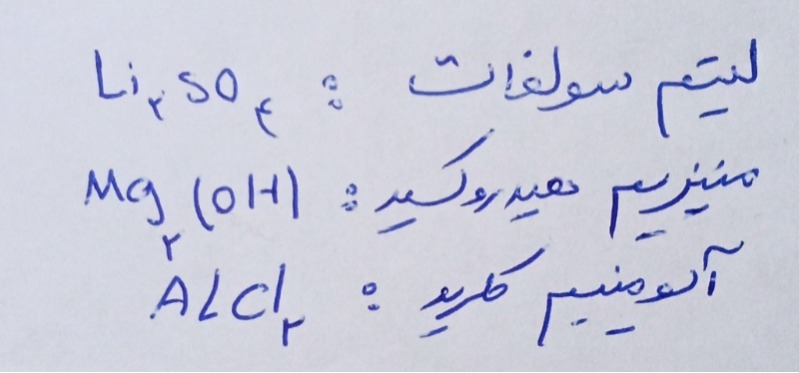 لیتیم سولفات : Li۲SO۴
منیزیم هیدروکسید : Mg۲(OH)
آلومینیم کلرید : AlCl۲